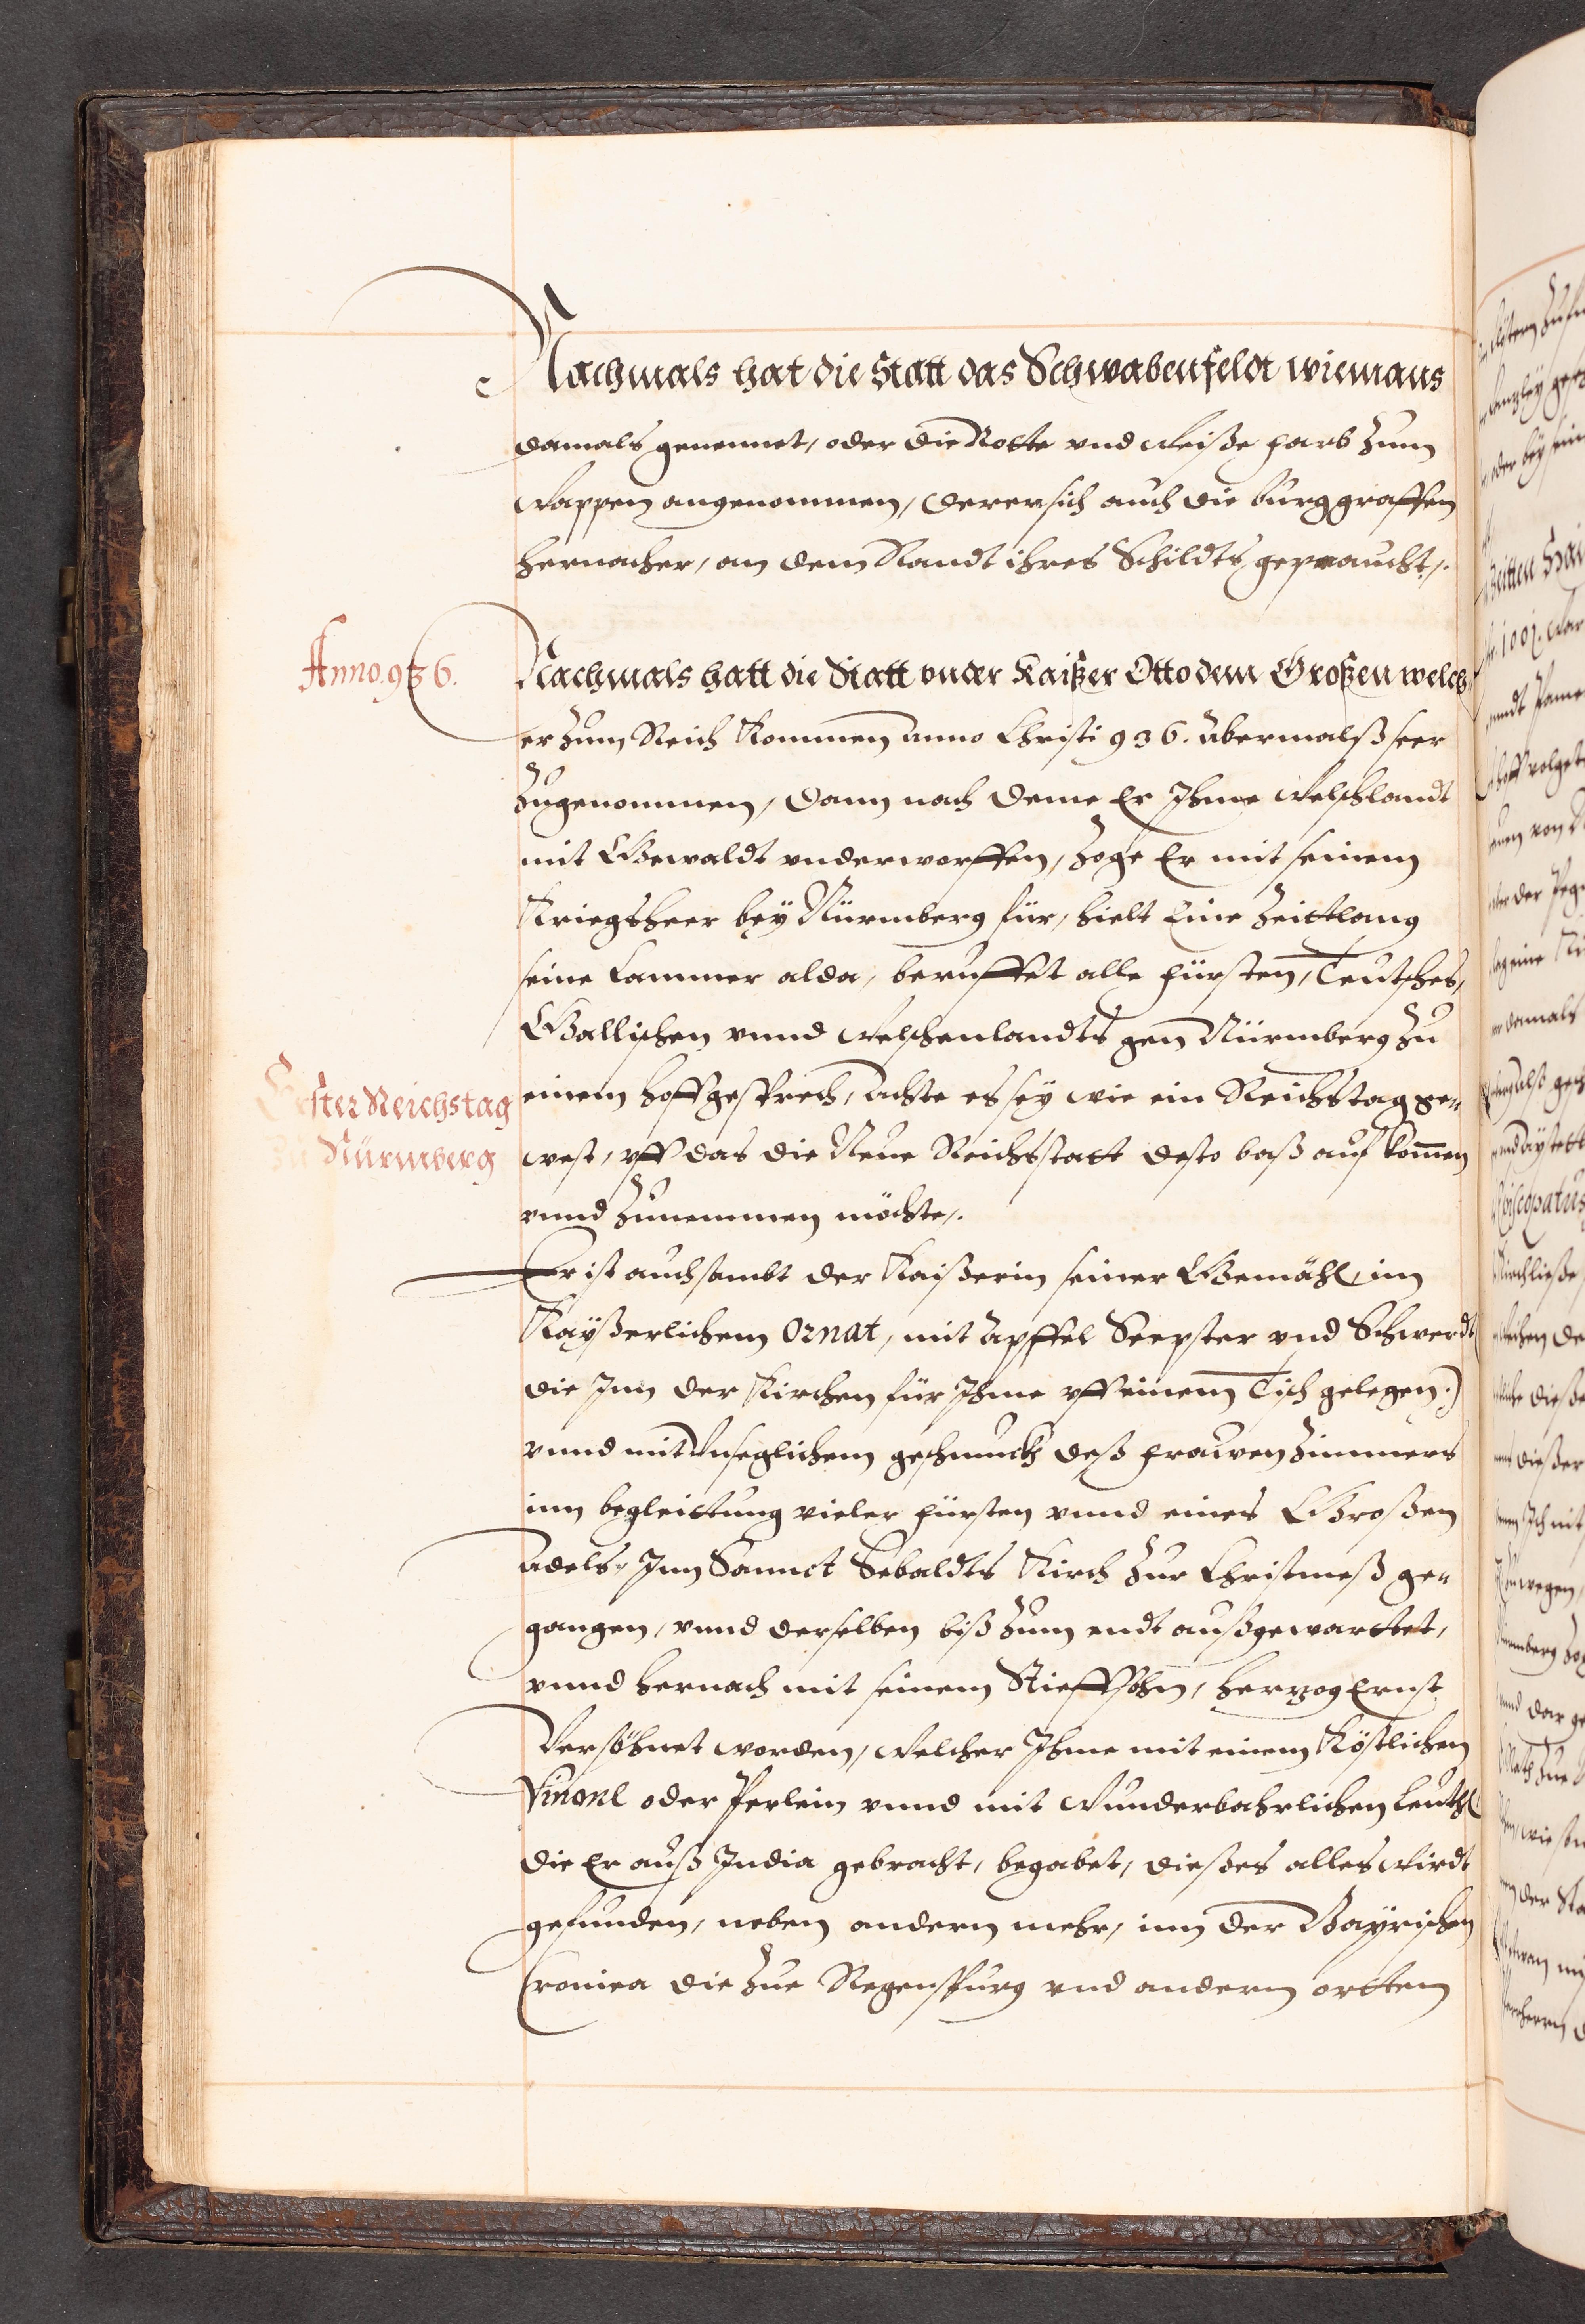 Nachmals hat die Statt das Schwabenfeldt wiemans
damals genennet, oder die Rotte vnd Weiße farb zum
Wappen angenommen, derer sich auch die burggraffen
hernacher, an dem Randt ihres Schildts gepraucht.
Anno. 936.
Nachmals hatt die Statt vnder Kaißer Otto dem Großen welch
er zum Reich kommen anno Christi 936. abermalß seer
zugenommen, dann nach deme Er Ihme Welschlandt
mit Gewaldt vnderworffen, zoge Er mit seinem
Kriegsheer bey Nürmberg für, hielt Eine Zeittlang
seine Cammer alda, beruffet alle Fürsten, Teutsches,
Gallischen vnnd Welschenlandts gen Nürmberg zu
Erster Reichstag
zu Nürmberg
einem hoffgesprech, achte es sey wie ein Reichstag ge„
west, vff das die Neue Reichsstatt desto baß aufkommen
vnnd zunemmen möchte.
Er ist auch sambt der Kaißerin seiner Gemähl, im
Kayßerlichem Ornat, mit apffel Scepter vnd Schwerdt
die Inn der Kirchen für Ihme vff einem Tisch gelegen.)
vnnd mit Vnseglichem geschmuck deß frauwenzimmers
inn begleittung vieler Fürsten vnnd eines Großen
adels, Inn Sannct Sebaldts Kirch zur Christmeß ge„
gangen, vnnd derselben biß zum endt außgewarttet,
vnnd hernach mit seinem Stieffsohn, herzog Ernst
Versöhnet worden, Welcher Ihme mit einem Köstlichen
oder Perlein vnnd mit Wunderbahrlichen Leuth
die Er auß India gebracht, begabet, dießes alles Wirdt
gefunden, neben andern mehr, inn der Bayrischen
Cronica die zue Regenspurg vnd andern ortten